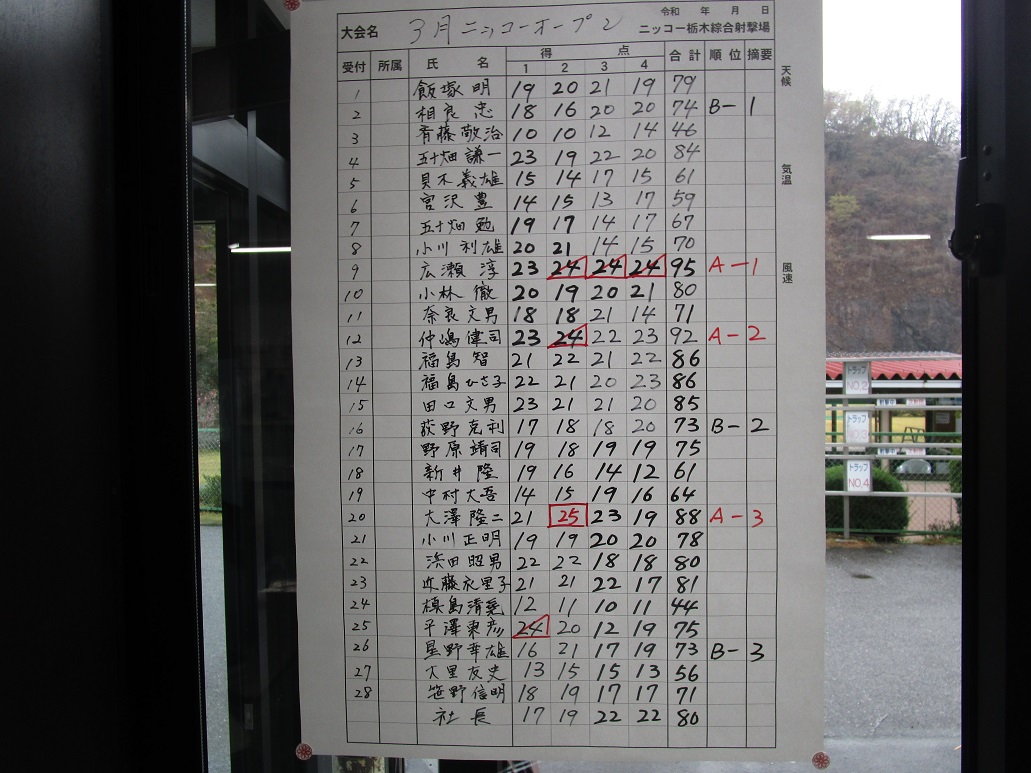 令和 年 月 日
大会名 3月ニッコーオープン ニッコー栃木綜合射撃場
受付 所属 氏 名 得 点 合計 順位 摘要
1 2 3 4
1 飯塚 明 19 20 21 19 79
2 相良 忠 18 16 20 20 74 B-1
3 斉藤敬治 10 10 12 14 46
4 五十畑謙一 23 19 22 20 84
5 貝木義雄 15 14 17 15 61
6 宮沢 豊 14 15 13 17 59
7 五十畑 勉 19 17 14 17 67
8 小川利雄 20 21 14 15 70
9 広瀬 淳 23 24 24 24 95 A-1
10 小林 徹 20 19 20 21 80
11 奈良文男 18 18 21 14 71
12 仲嶋偉司 23 24 22 23 92 A-2
13 福島 智 21 22 21 22 86
14 福島ひさ子 22 21 20 23 86
15 田口文男 23 21 21 20 85
16 荻野克利 17 18 18 20 73 B-2
17 野原靖司 19 18 19 19 75
18 新井 隆 19 16 14 12 61
19 中村大吾 14 15 19 16 64
20 大澤隆二 21 25 23 19 88 A-3
21 小川正明 19 19 20 20 78
22 浜田昭男 22 22 18 18 80
23 近藤衣里子 21 21 22 17 81
24 槙島清 12 11 10 11 44
25 平澤東彦 24 20 12 19 75
26 星野幸雄 16 21 17 19 73 B-3
27 大里友史 13 15 15 13 56
28 笹野信明 18 19 17 17 71
社長 17 19 22 22 80
天候
気温
風速
トラップ
NO.2
トラップ
NO.3
トラップ
NO.4